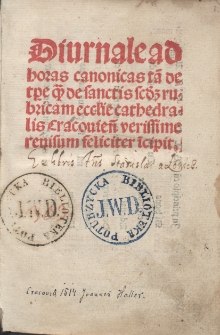 Diurnale ad
horas canonicas tã de
tpe q̃ de sanctis scd̃z ru-
bricam ecclie cathedra-
lis Cracouieñ verissime
reuisum feliciter icipit.
Ex libris
POTURZYCKA BIBLIOTEKA
J.W.D.
POTURZYCKA BIBLIOTEKA
J.W.D.
Cracoviae 1514 Joannes Haller.